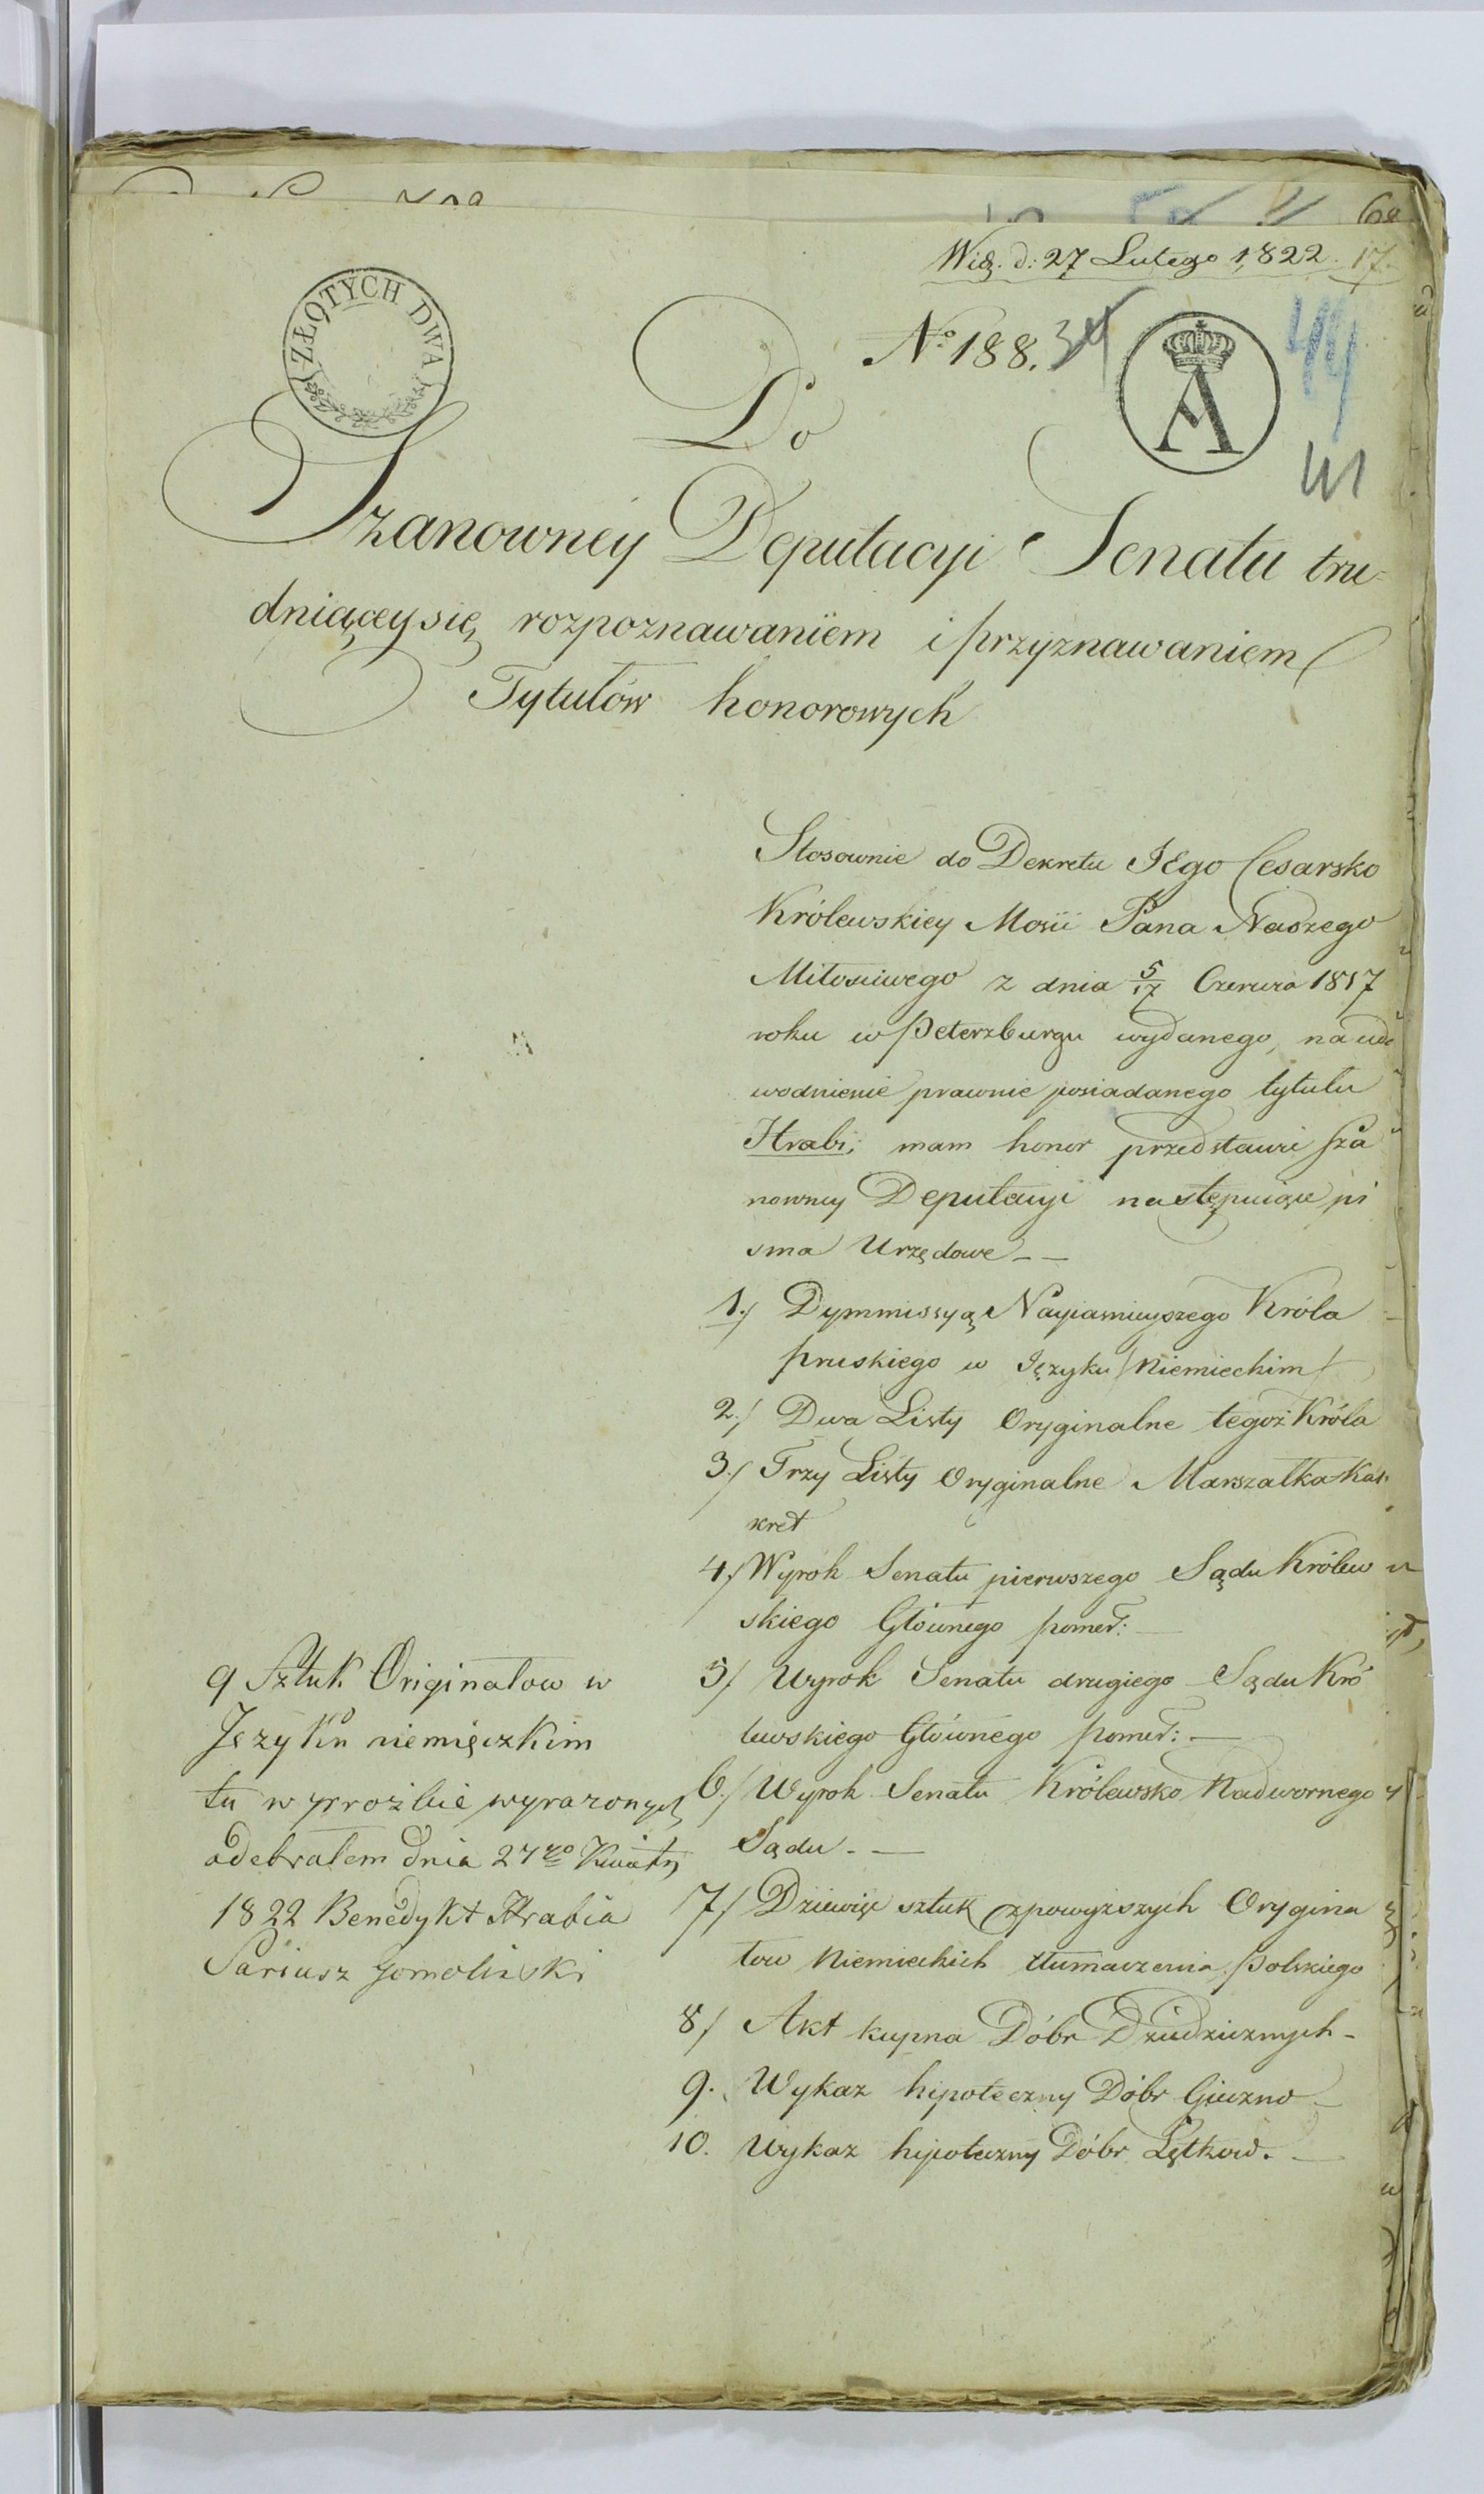 68
Wię. d: 27 Lutego 1822. 17.
ZŁOTYCH DWA
No 188. 34
A
44
41
Do
Szanowney Deputacyi Senatu tru-
dniącey się rozpoznawaniem i przyznawaniem
Tytułów honorowych
Stosownie do Dekretu JEgo Cesarsko
Królewskiey Mości Pana Naszego
Miłościwego z dnia 5/17 Czerwca 1817
roku w Peterzburgu wydanego, na udo
wodnienie prawnie posiadanego tytułu
Hrabi; mam honor przedstawić Sza
nowney Deputacyi następuiące pi
sma Urzędowe --
1./ Dymmissyą Nayiaśnieyszego Króla
pruskiego w Języku Niemieckim
2./ Dwa Listy Oryginalne tegoż Króla
3./ Trzy Listy Oryginalne Marszałka Kal
kret
4./ Wyrok Senatu pierwszego Sądu Królew
skiego Głównego pomer:
5/ Wyrok Senatu drugiego Sądu Kró
lewskiego Głównego pomer: -
6./ Wyrok Senatu Królewsko Nadwornego
Sądu. -
7/ Dziewięć sztuk z powyższych Orygina
łow Niemieckich tłumaczenia Polskiego
8/ Akt kupna Dóbr Dziedzicznych -
9. Wykaz hipoteczny Dóbr Gieczno
10. Wykaz hipoteczny Dóbr Lętkow. -
9 Sztuk Originałow w
Języku niemięczkim
tu w proźbie wyrazonych
odebrałem dnia 27go Kwiet
1822 Benedykt Hrabia
Pariusz Gomoliński